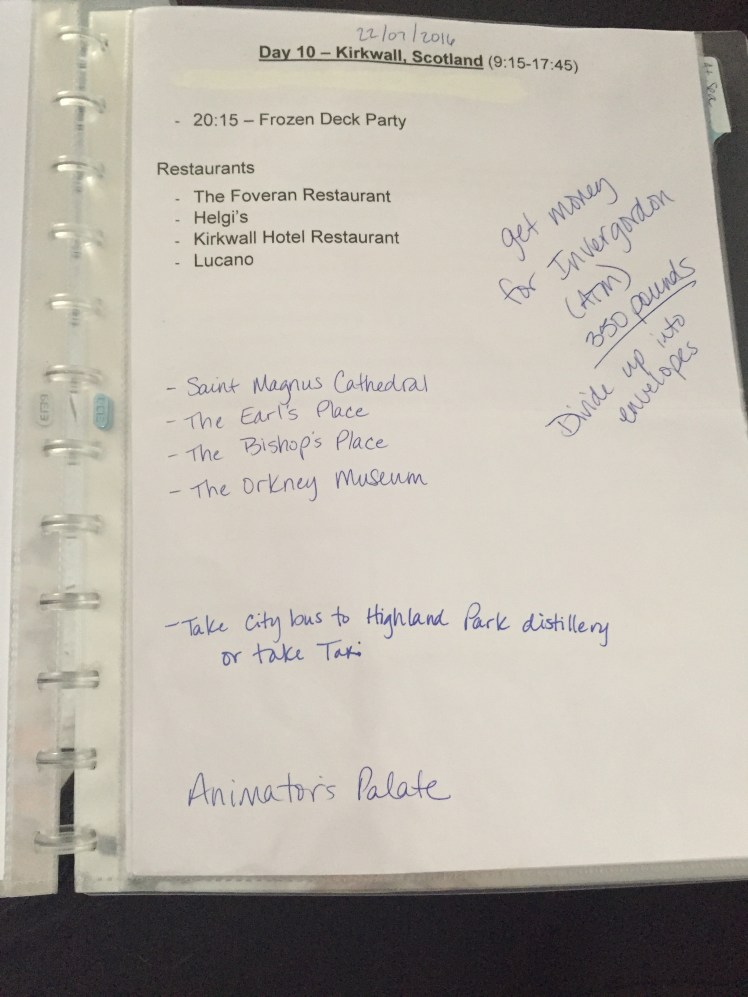 22/07/2016
Day 10 – Kirkwall, Scotland (9:15-17:45)
- 20:15 – Frozen Deck Party
Restaurants
- The Foveran Restaurant
- Helgi's
- Kirkwall Hotel Restaurant
- Lucano
get money
for Invergordon
(ATM)
350 pounds
Divide up into
envelopes
- Saint Magnus Cathedral
- The Earl's Place
- The Bishop's Place
- The Orkney Museum
- Take City bus to Highland Park distillery
or take Taxi
Animator's Palate